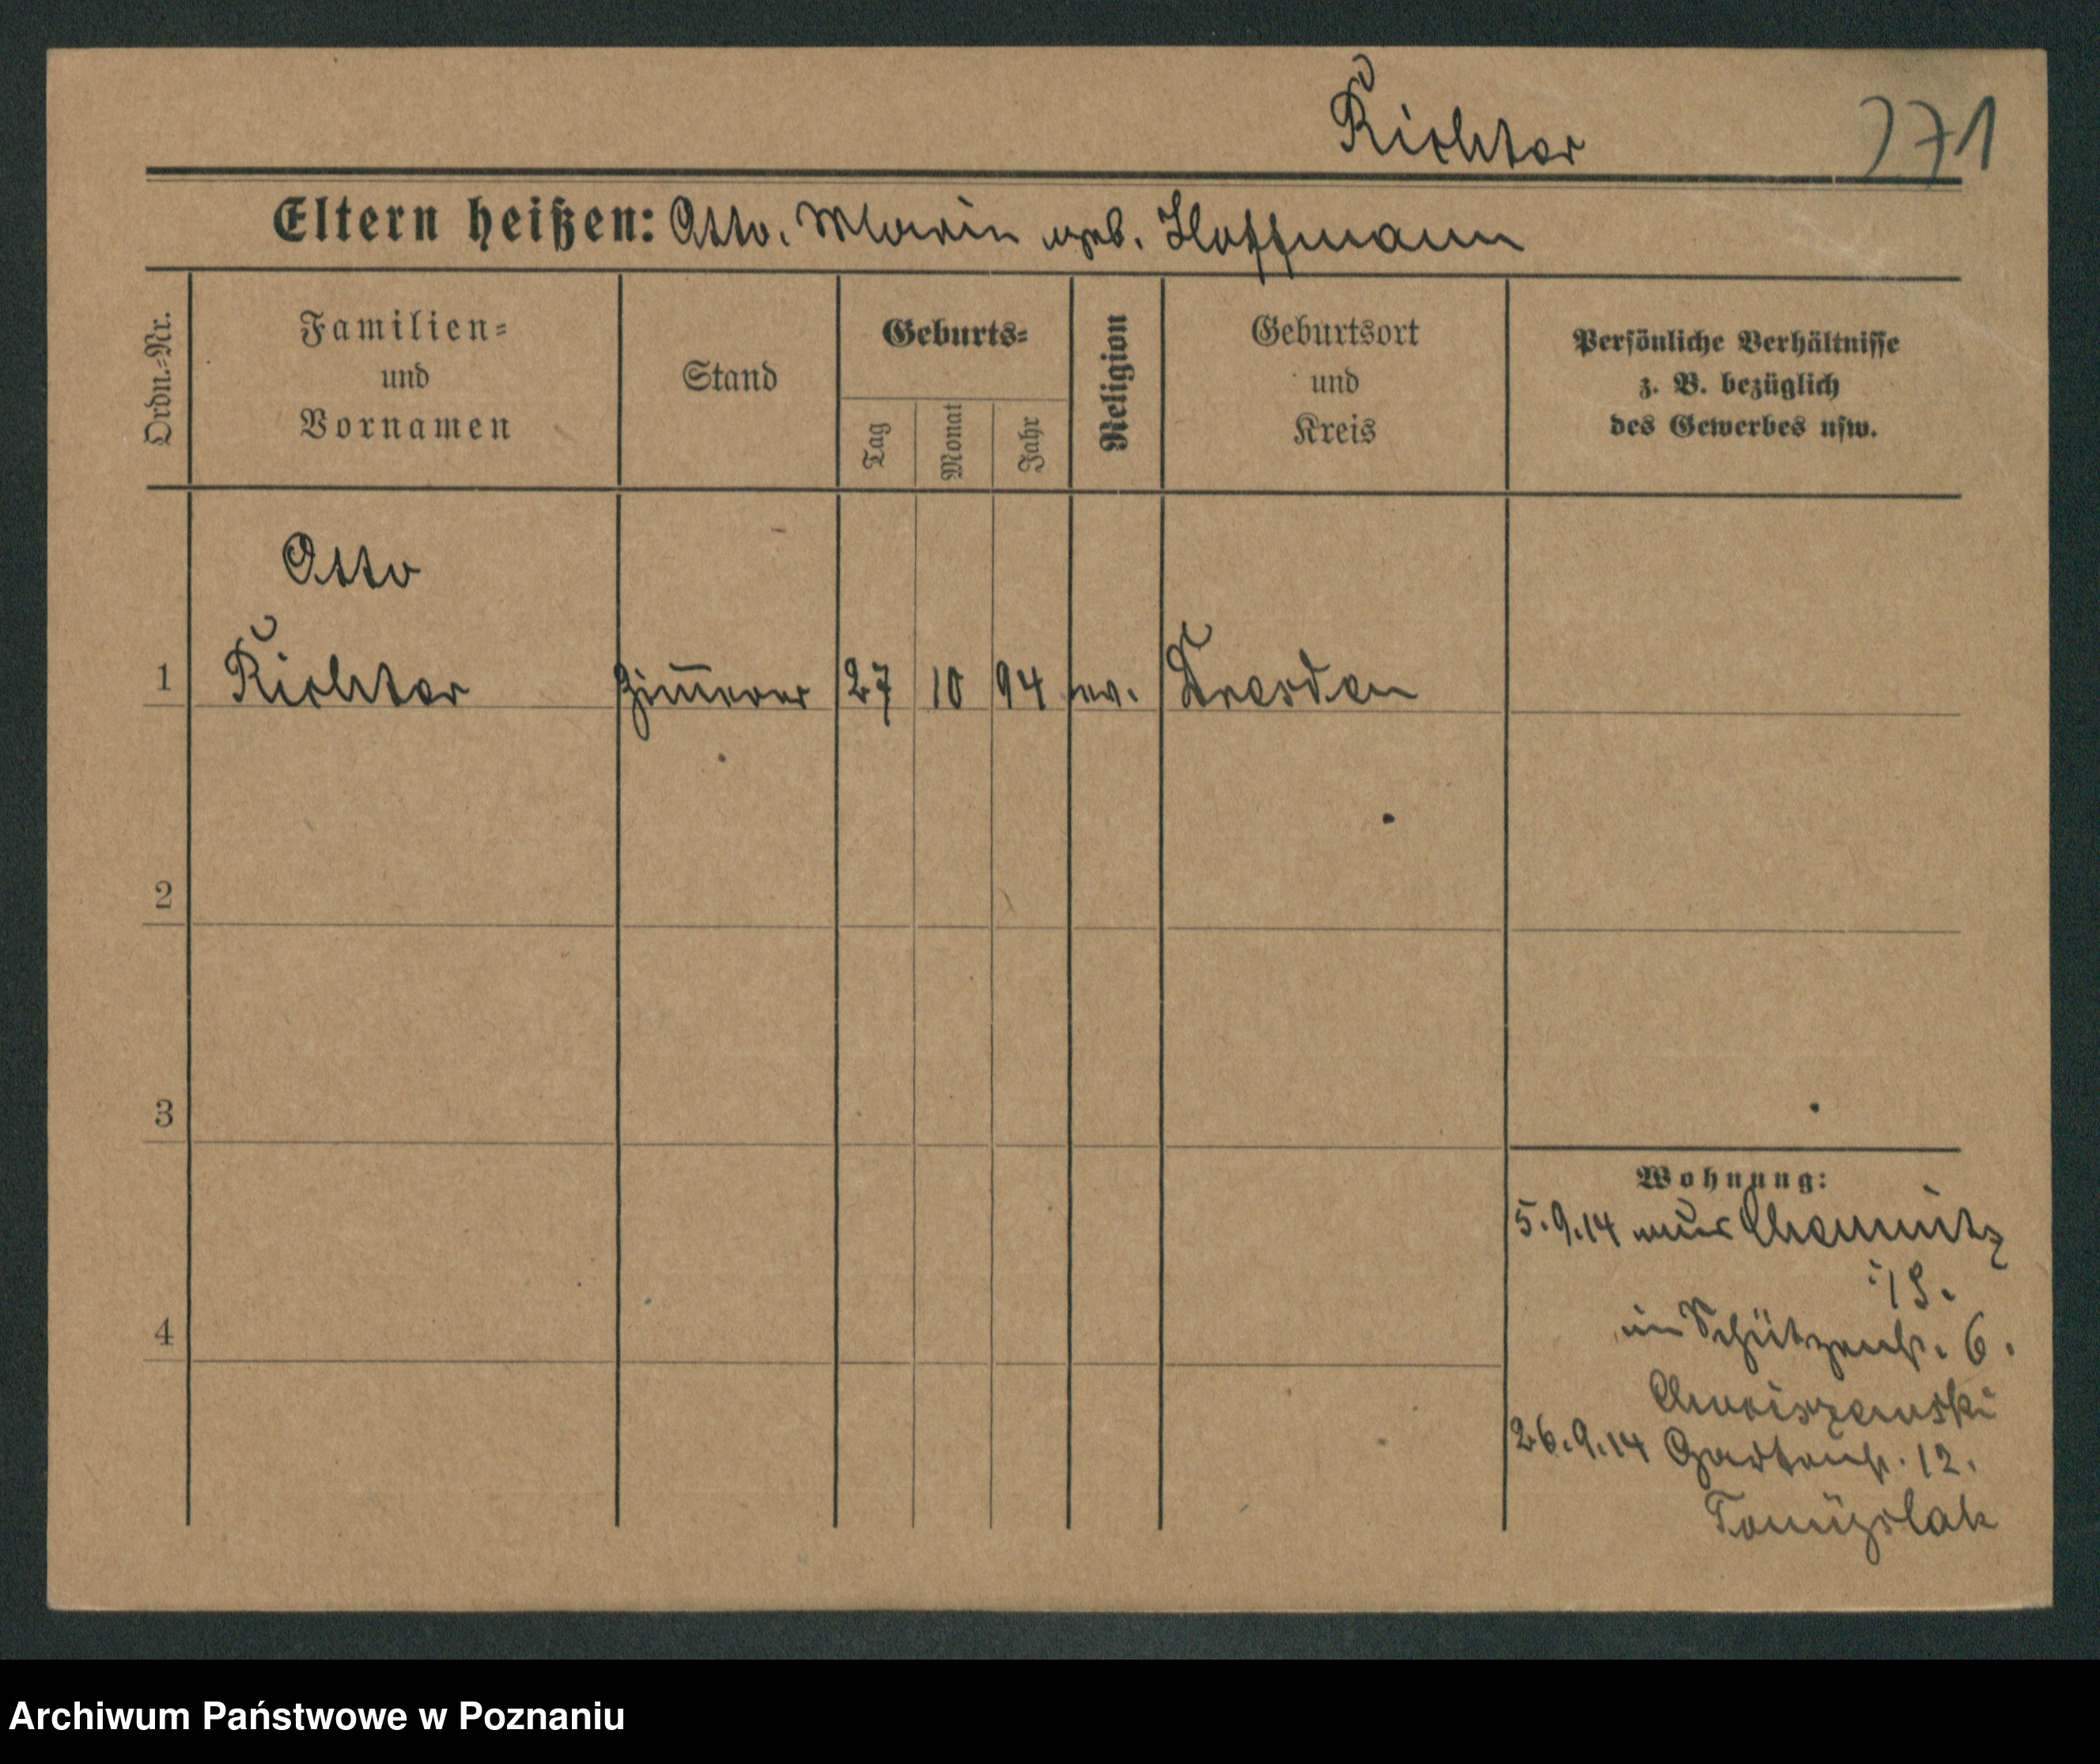 Richter 271
Eltern heißen: Otto. Marie geb. Hoffmann
Ordn.-Nr.
Familien- und Vornamen
Stand
Geburts-
Tag
Monat
Jahr
Religion
Geburtsort und Kreis
Persönliche Verhältnisse
z. B. bezüglich
des Gewerbes usw.
Otto
1 Richter Zim̅erer 27 10 94 ev. Dresden
2
3
4
Wohnung:
5.9.14 aus Chemnitz
i/S.
in Schützenstr. 6.
26.9.14 Gartenstr. 12.
Archiwum Państwowe w Poznaniu